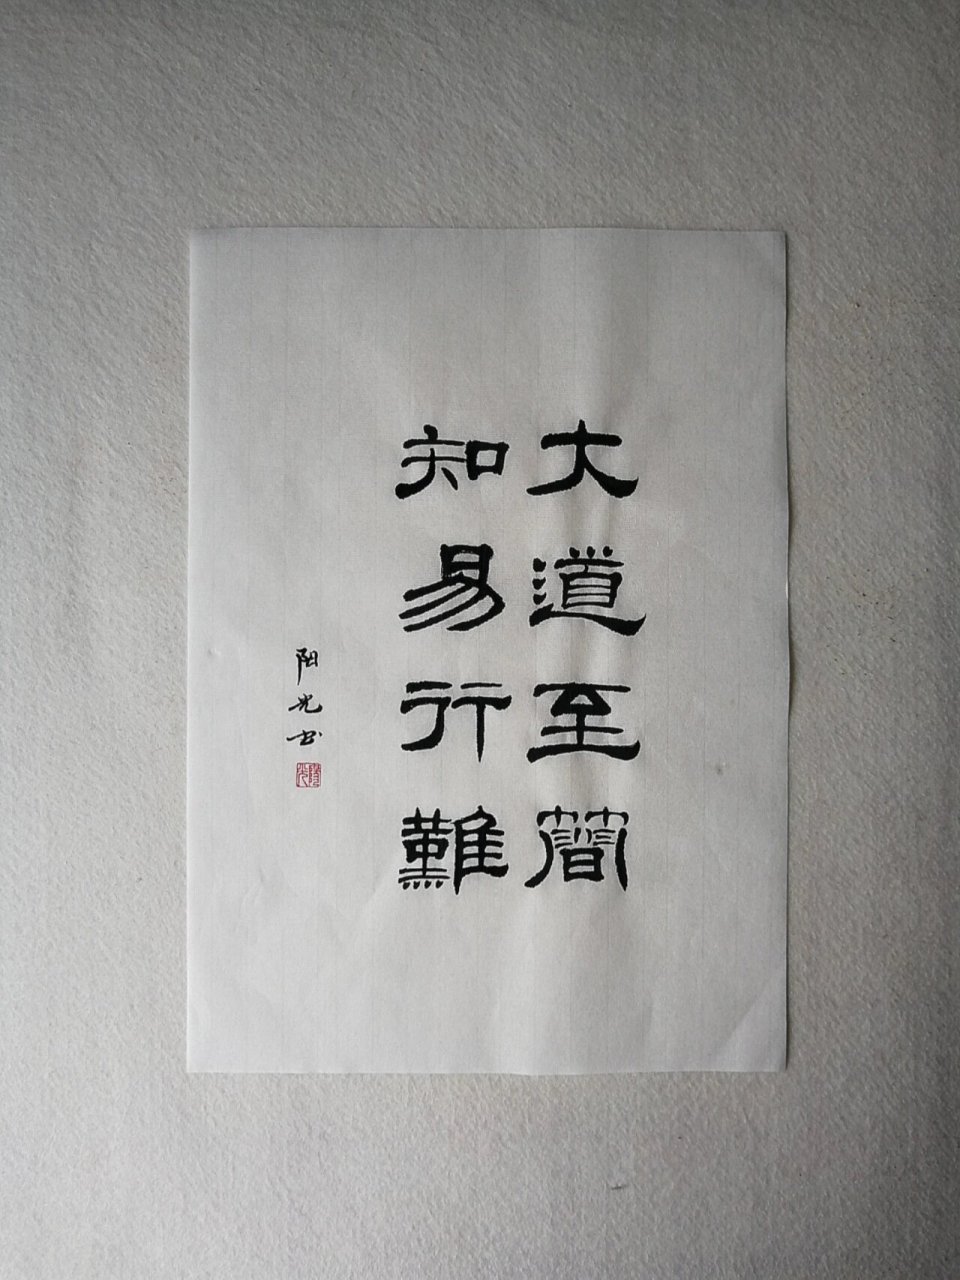 大道至簡
知易行難
阳光书